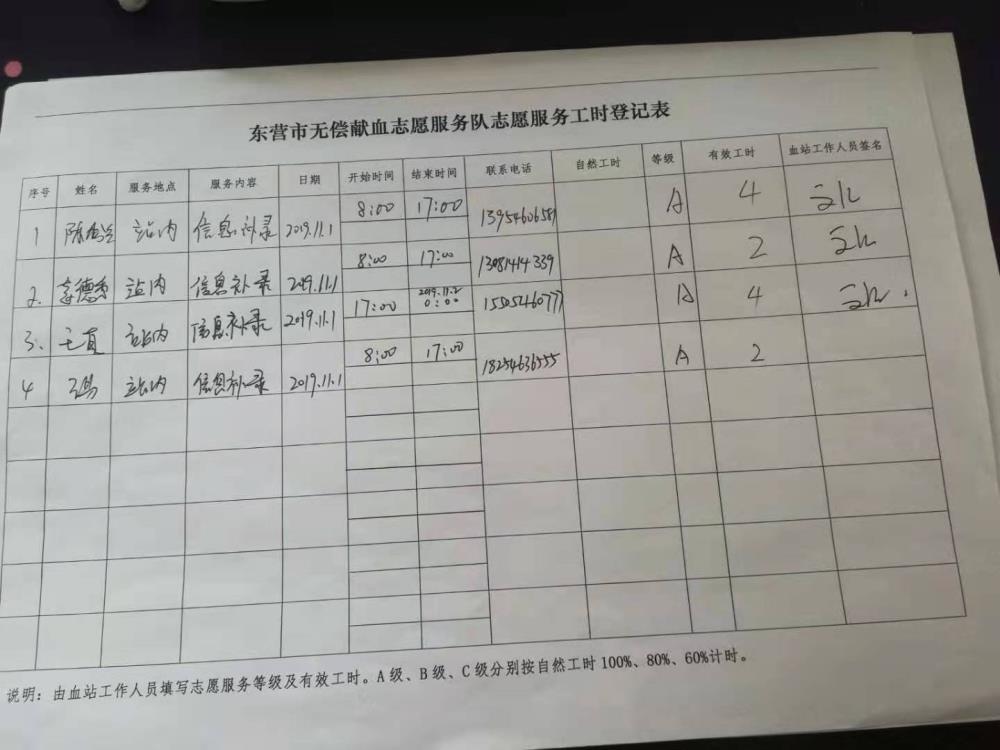 东营市无偿献血志愿服务队志愿服务工时登记表
序号 姓名 服务地点 服务内容 日期 开始时间 结束时间 联系电话 自然工时 等级 有效工时 血站工作人员签名
1 站内 信息补录 2019.11.1 8:00 17:00 13954606581 A 4
2. 站内 信息补录 2019.11.1 8:00 17:00 13081414339 A 2
3. 站内 信息补录 2019.11.1 17:00 2019.11.2 0:00 15505460777 A 4
4 站内 信息补录 2019.11.1 8:00 17:00 18254636555 A 2
说明：由血站工作人员填写志愿服务等级及有效工时。A级、B级、C级分别按自然工时100%、80%、60%计时。